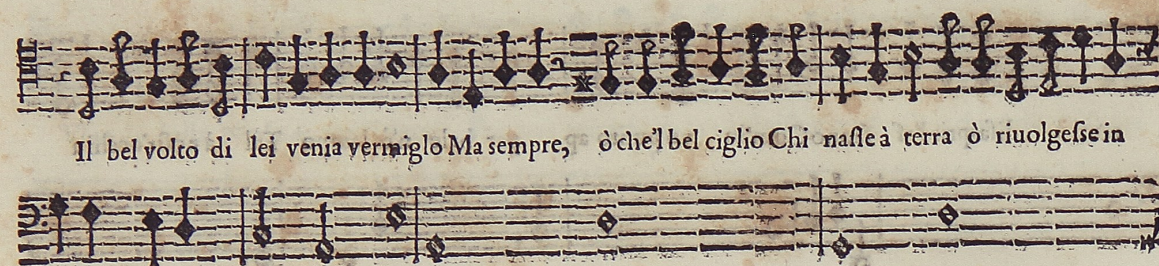 Il bel volto di lei venia vermiglo Ma sempre, ò che'l bel ciglio Chi nasſe à terra ò riuolgeſse in